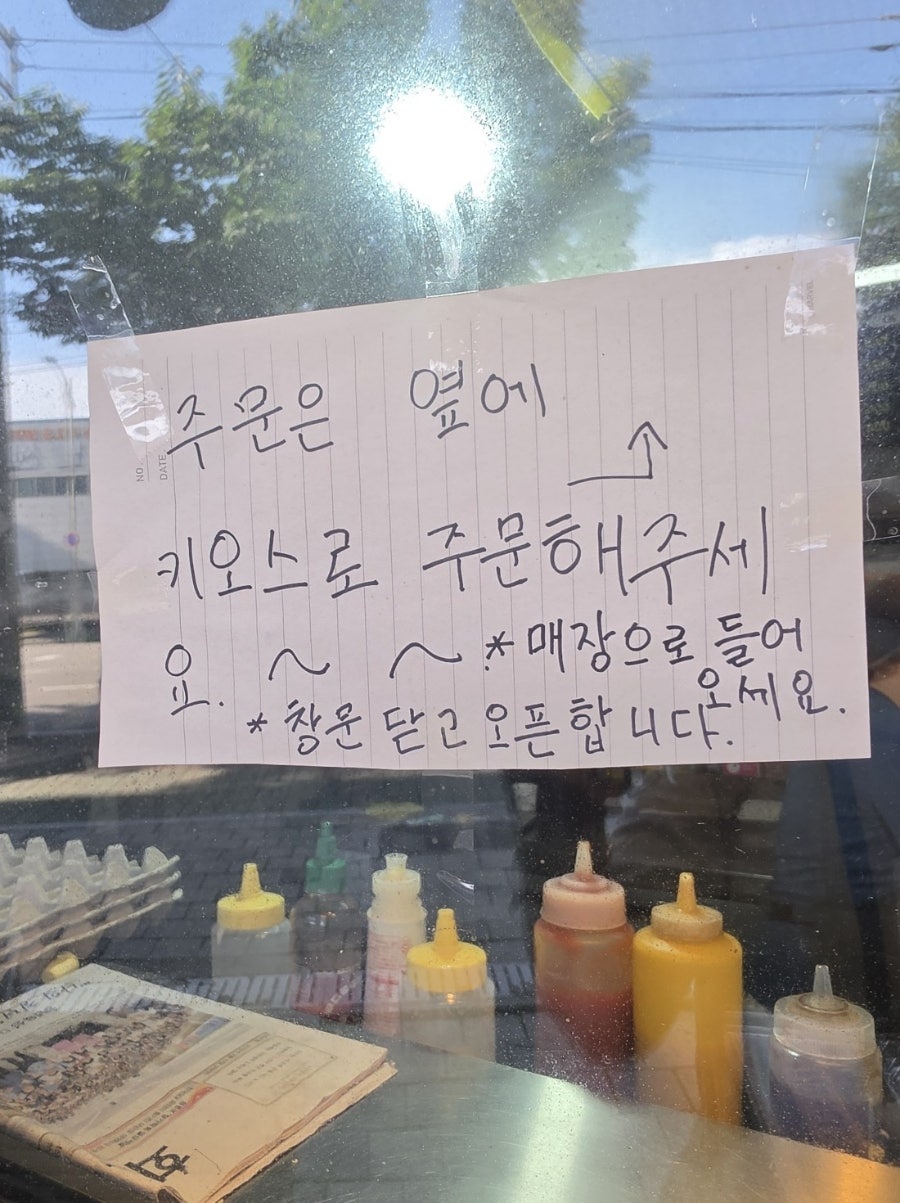 NO.
DATE
주문은 옆에
키오스로 주문해주세
요. ~ ~ * 매장으로 들어
오세요.
* 창문 닫고 오픈합니다.